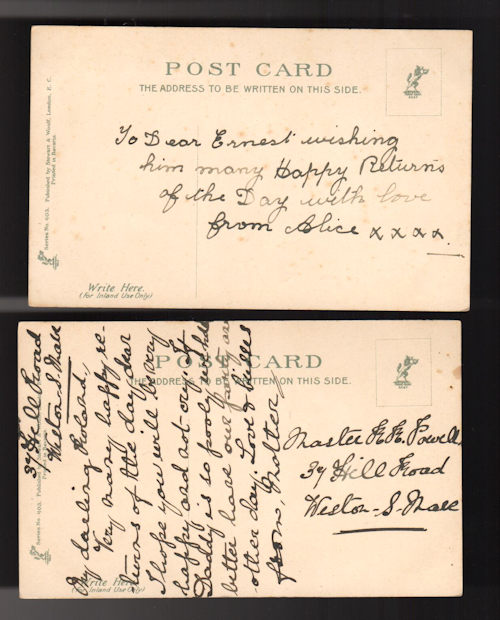 POST CARD
THE ADDRESS TO BE WRITTEN ON THIS SIDE.
Series No. 603. Published by Stewart & Woolf, London, E. C.
Printed in Bavaria
To Dear Ernest wishing
him many Happy Returns
of the Day with love
from Alice x x x x.
Write Here.
(for Inland Use Only)
POST CARD
THE ADDRESS TO BE WRITTEN ON THIS SIDE.
Series No. 603. Published
Printed in
37 Hill Road
Weston-S-Mare
My darling Roland,
Very many happy re-
turns of the day dear
I hope you will be very
happy and not cry. If
Daddy is so poorly we had
better have our party an-
other day. Love & kisses
from, Mother
Master R. R. Powell
37 Hill Road
Weston-S-Mare
Write Here.
(for Inland Use Only)